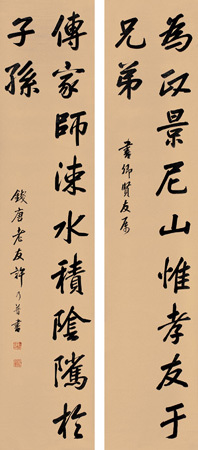 為政景尼山惟孝友于
兄弟
書卿賢友屬
傳家師涑水積陰騭於
子孫
錢唐老友許乃普書